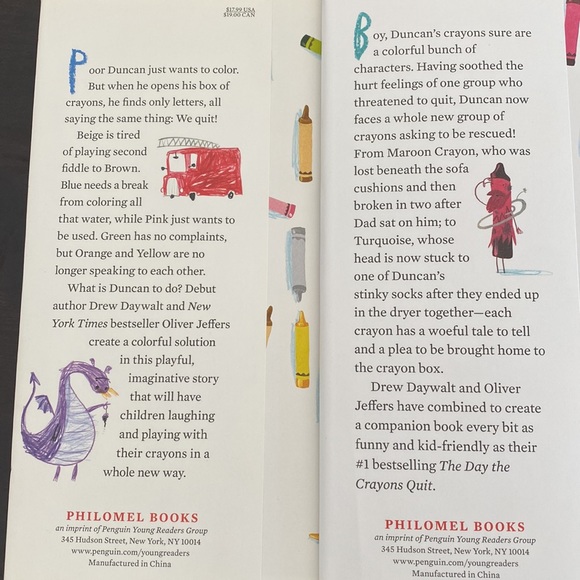 $17.99 USA
$19.00 CAN
Poor Duncan just wants to color.
But when he opens his box of
crayons, he finds only letters, all
saying the same thing: We quit!
Beige is tired
of playing second
fiddle to Brown.
Blue needs a break
from coloring all
that water, while Pink just wants to
be used. Green has no complaints,
but Orange and Yellow are no
longer speaking to each other.
What is Duncan to do? Debut
author Drew Daywalt and New
York Times bestseller Oliver Jeffers
create a colorful solution
in this playful,
imaginative story
that will have
children laughing
and playing with
their crayons in a
whole new way.
PHILOMEL BOOKS
an imprint of Penguin Young Readers Group
345 Hudson Street, New York, NY 10014
www.penguin.com/youngreaders
Manufactured in China
Boy, Duncan's crayons sure are
a colorful bunch of
characters. Having soothed the
hurt feelings of one group who
threatened to quit, Duncan now
faces a whole new group of
crayons asking to be rescued!
From Maroon Crayon, who was
lost beneath the sofa
cushions and then
broken in two after
Dad sat on him; to
Turquoise, whose
head is now stuck to
one of Duncan's
stinky socks after they ended up
in the dryer together—each
crayon has a woeful tale to tell
and a plea to be brought home to
the crayon box.
Drew Daywalt and Oliver
Jeffers have combined to create
a companion book every bit as
funny and kid-friendly as their
#1 bestselling The Day the
Crayons Quit.
PHILOMEL BOOKS
an imprint of Penguin Young Readers Group
345 Hudson Street, New York, NY 10014
www.penguin.com/youngreaders
Manufactured in China